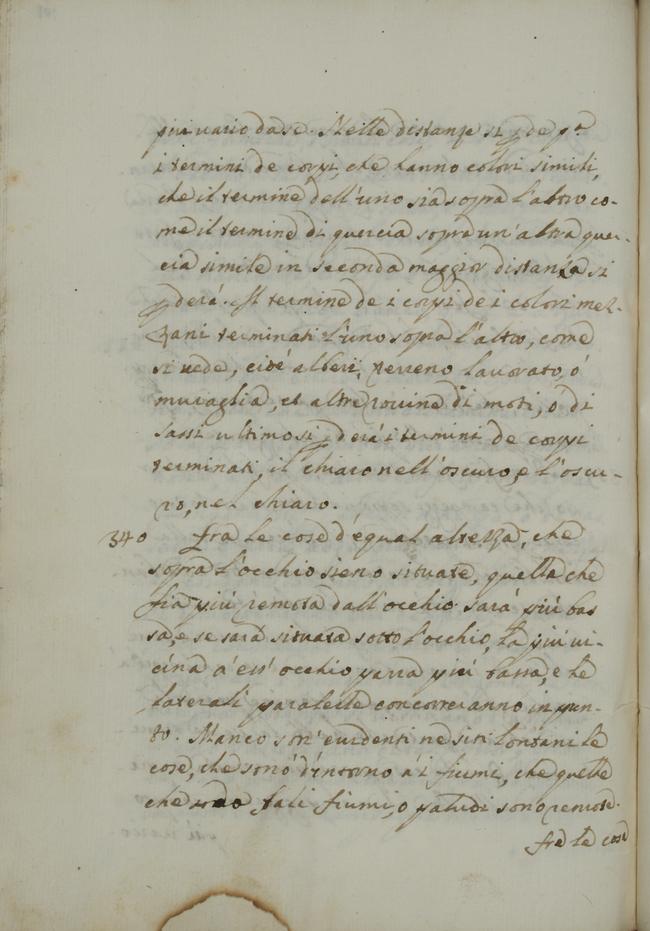 piú vario da se. Nelle distanze si pde pa
i termini de corpi, che hanno colori simili,
che il termine dell'uno sia sopra l'altro co-
me il termine di quercia sopra un'altra quer-
cia simile in seconda maggior distanza si
pderá. Il termine de i corpi de i colori mez-
zani terminati l'uno sopra l'altro, come
si vede, cioé alberi, terreno lavorato, ó
muraglia, et altre rovine di moti, o di
sassi ultimo si pderá i termini de corpi
terminati, il chiaro nell'oscuro, e l'oscu-
ro, nel chiaro.
340 Fra le cose d'equal altezza, che
sopra l'occhio sieno situate, quella che
fia piú remota dall'occhio sará piú bas
sa, e se sará situata sotto l'occhio, la piú vi-
cina á ess' occhio parra piú bassa, e le
laterali paralelle concorreranno in pun-
to. Manco son' evidenti ne siti lontani le
cose, che sono d'intorno á i fiumi, che quelle
che da tali fiumi, o paludi sono remote.
fra le cose